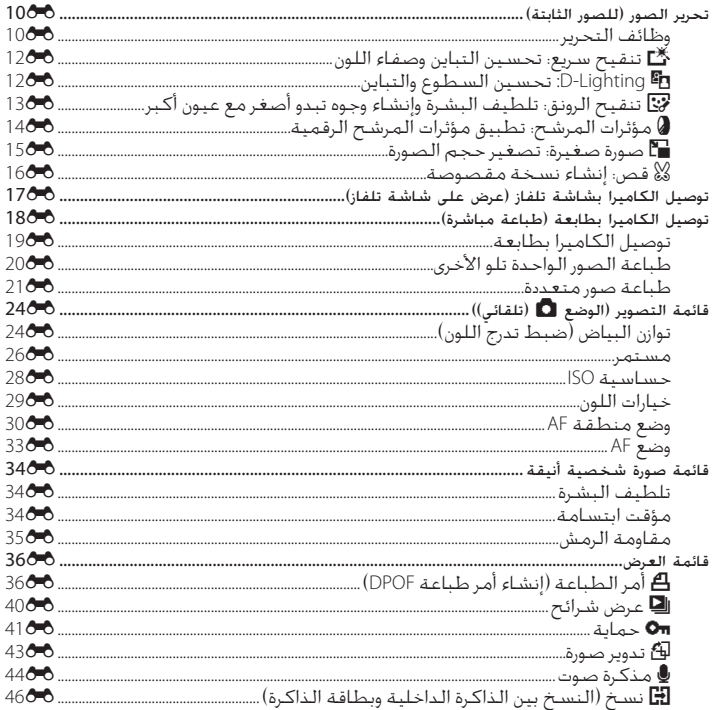 تحرير الصور (للصور الثابتة) ........ 10
وظائف التحرير ........ 10
تنقيح سريع: تحسين التباين وصفاء اللون ........ 12
D-Lighting: تحسين السطوع والتباين ........ 12
تنقيح الرونق: تلطيف البشرة وإنشاء وجوه تبدو أصغر مع عيون أكبر ........ 13
مؤثرات المرشح: تطبيق مؤثرات المرشح الرقمية ........ 14
صورة صغيرة: تصغير حجم الصورة ........ 15
قص: إنشاء نسخة مقصوصة ........ 16
توصيل الكاميرا بشاشة تلفاز (عرض على شاشة تلفاز) ........ 17
توصيل الكاميرا بطابعة (طباعة مباشرة) ........ 18
توصيل الكاميرا بطابعة ........ 19
طباعة الصور الواحدة تلو الأخرى ........ 20
طباعة صور متعددة ........ 21
قائمة التصوير (الوضع (تلقائي)) ........ 24
توازن البياض (ضبط تدرج اللون) ........ 24
مستمر ........ 26
حساسية ISO ........ 28
خيارات اللون ........ 29
وضع منطقة AF ........ 30
وضع AF ........ 33
قائمة صورة شخصية أنيقة ........ 34
تلطيف البشرة ........ 34
مؤقت ابتسامة ........ 34
مقاومة الرمش ........ 35
قائمة العرض ........ 36
أمر الطباعة (إنشاء أمر طباعة DPOF) ........ 36
عرض شرائح ........ 40
حماية ........ 41
تدوير صورة ........ 43
مذكرة صوت ........ 44
نسخ (النسخ بين الذاكرة الداخلية وبطاقة الذاكرة) ........ 46